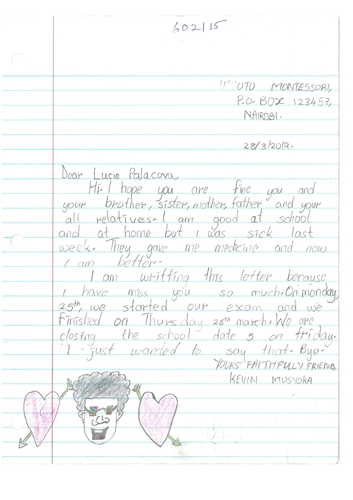 602/15
UTU MONTESSORI,
P.O. BOX 123457,
NAIROBI.
28/3/2019.
Dear Lucia Palacova,
Hi. I hope you are fine you and
your brother, sister, mother, father and your
all relatives. I am good at school
and at home but I was sick last
week. They gave me medicine and now
I am better.
I am writting this letter because
I have miss you so much. On monday,
25th, we started our exam and we
finished on Thursday 28th march. We are
closing the school date 5 on friday.
I just wanted to say that. Bye.
YOURS FAITHFULLY FRIEND,
KEVIN MUSYOKA